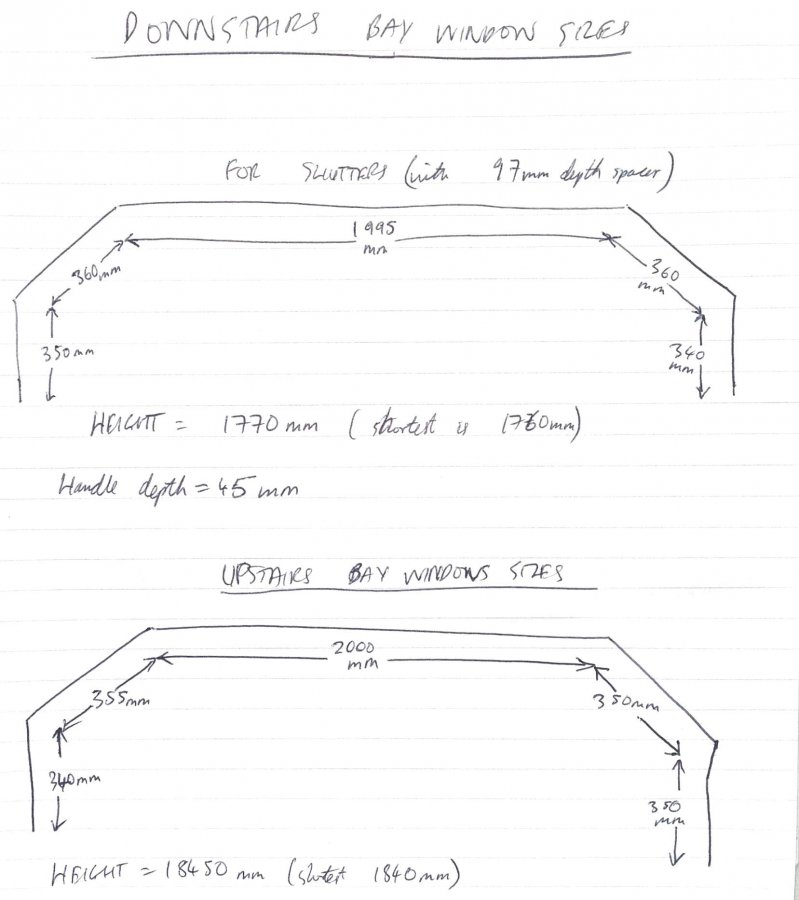 DOWNSTAIRS BAY WINDOW SIZES
FOR SHUTTERS (with 97mm depth spacer)
1995
mm
360mm
360
mm
350mm
340
mm
HEIGHT = 1770mm (shortest is 1760mm)
Handle depth = 45mm
UPSTAIRS BAY WINDOWS SIZES
2000
mm
355mm
350mm
340mm
350
mm
HEIGHT = 18450mm (shortest 1840mm)